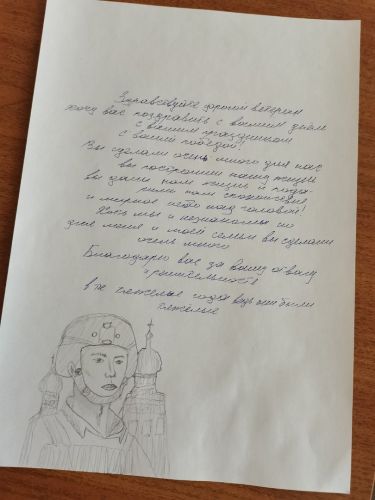 Здравствуйте дорогой ветеран
хочу вас поздравить с вашим днём
с вашим праздником
с вашей победой!
Вы сделали очень много для нас
вы построили нашу жизнь
вы дали нам жизнь и пода-
рили нам спокойствие
и мирное небо над головой!
Хоть мы и незнакомы но
для меня и моей семьи вы сделали
очень много
Благодарю вас за вашу отвагу
и решительность
в те тяжелые года ведь они были
тяжелые